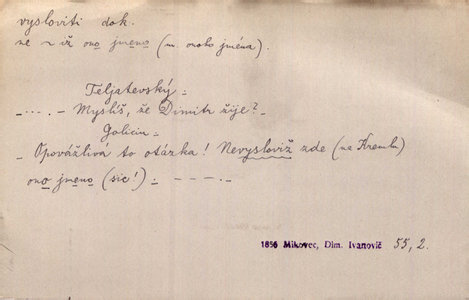 vysloviti dok.
ne ~ iž ono jmeno (m. onoho jména).
Teljatevský
– ... . – Myslíš, že Dimitr žije? –
Golicin
– Opovážlivá to otázka! Nevysloviž zde (na Kremlu)
ono jmeno (sic!). – – – . –
1856 Mikovec, Dim. Ivanovič 55, 2.